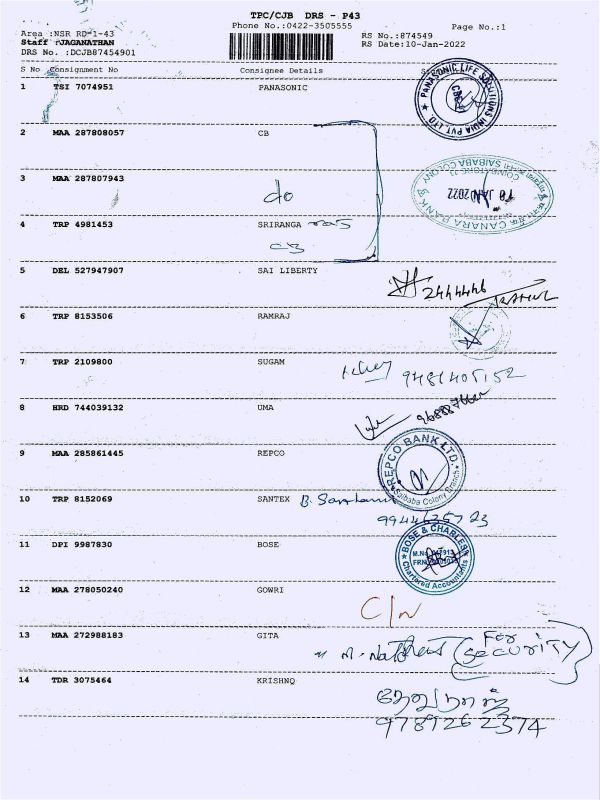 TPC/CJB DRS - P43
Phone No.:0422-3505555
Page No.:1
Area :NSR RD-1-43
RS No.:874549
Staff :JAGANATHAN
RS Date:10-Jan-2022
DRS No. :DCJB87454901
S No Consignment No Consignee Details
1 TSI 7074951 PANASONIC
PANASONIC LIFE SOLUTIONS INDIA PVT. LTD.
CBE
2 MAA 287808057 CB
3 MAA 287807943
do
CANARA BANK
SAIBABA COLONY
10 JAN 2022
4 TRP 4981453 SRIRANGA
CB
5 DEL 527947907 SAI LIBERTY
2444446
6 TRP 8153506 RAMRAJ
7 TRP 2109800 SUGAM
9481405152
8 HRD 744039132 UMA
9 MAA 285861445 REPCO
REPCO BANK LTD.
Saibaba Colony Branch
10 TRP 8152069 SANTEX
11 DPI 9987830 BOSE
BOSE & CHARLES
Chartered Accountants
12 MAA 278050240 GOWRI
C/N
13 MAA 272988183 GITA
(FOR SECURITY)
14 TDR 3075464 KRISHNQ
9789262374